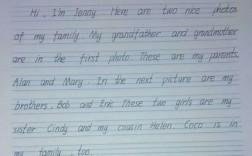 Hi, I'm Jenny. Here are two nice photos
of my family. My grandfather and grandmother
are in the first photo. These are my parents,
Alan and Mary. In the next picture are my
brothers, Bob and Eric. These two girls are my
sister Cindy and my cousin Helen. Coco is in
my family, too.